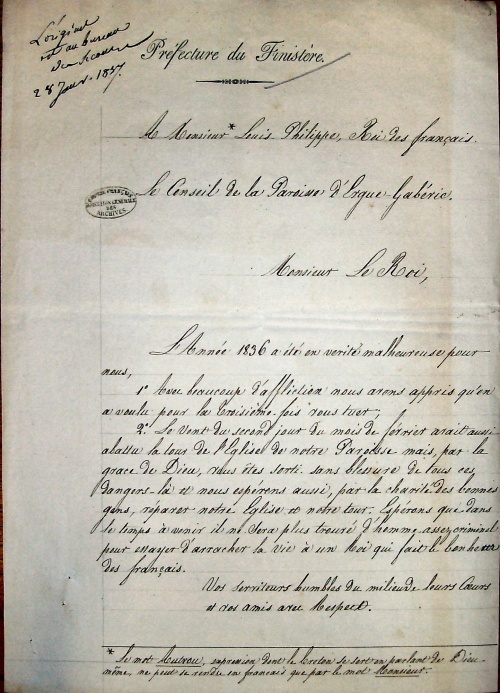 L'original
est au bureau
des secours
28 Janv. 1837.
Préfecture du Finistère.
A Monsieur* Louis Philippe, Roi des français.
Le Conseil de la Paroisse d'Ergué-Gabéric.
DIRECTION GÉNÉRALE
DES
ARCHIVES
Monsieur Le Roi,
L'Année 1836 a été en verité malheureuse pour
nous,
1° Avec beaucoup d'affliction nous avons appris qu'on
a voulu pour la troisième fois vous tuer;
2° Le vent du second jour du mois de février avait aussi
abattu la tour de l'Eglise de notre Paroisse mais, par la
grace de Dieu, vous êtes sorti sans blessure de tous ces
dangers-là et nous espérons aussi, par la charité des bonnes
gens, réparer notre Eglise et notre tour. Espérons que dans
le temps à venir il ne sera plus trouvé d'homme assez criminel
pour essayer d'arracher la vie à un Roi qui fait le bonheur
des français.
Vos serviteurs humbles du milieu de leurs Cœurs
et vos amis avec Respect.
* Le mot Autrou, expression dont le Breton se sert en parlant de Dieu-
même, ne peut se rendre en français que par le mot Monsieur.